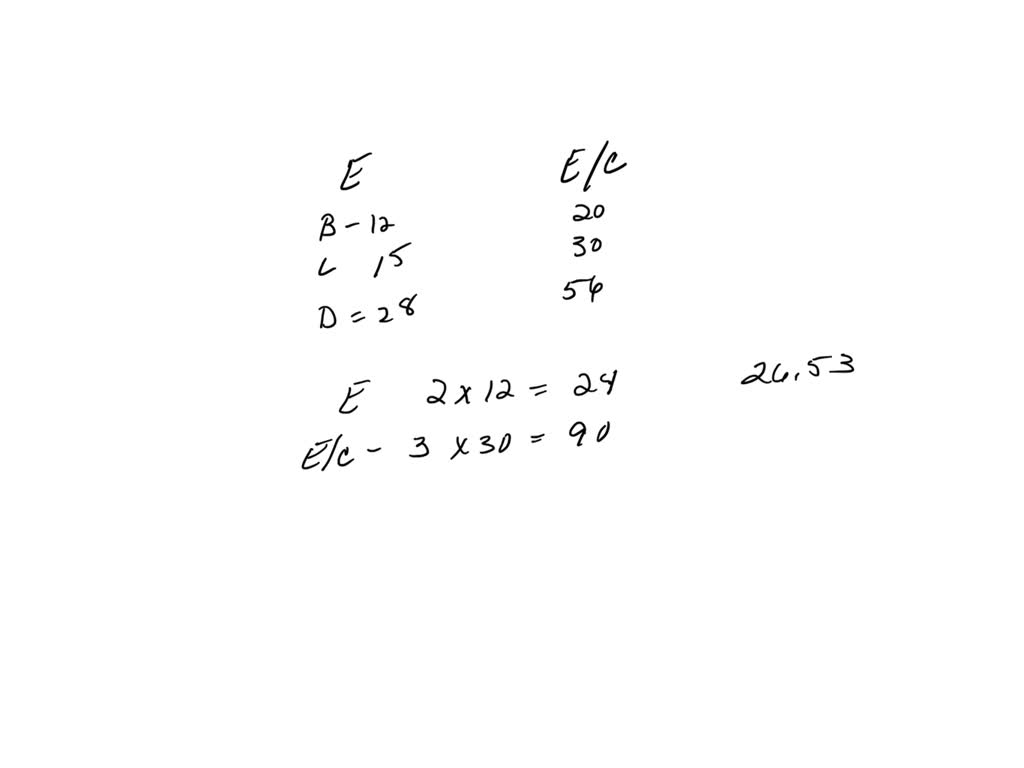 E E/C
B - 12 20
L 15 30
D = 28 56
E 2 x 12 = 24 26.53
E/C - 3 x 30 = 90